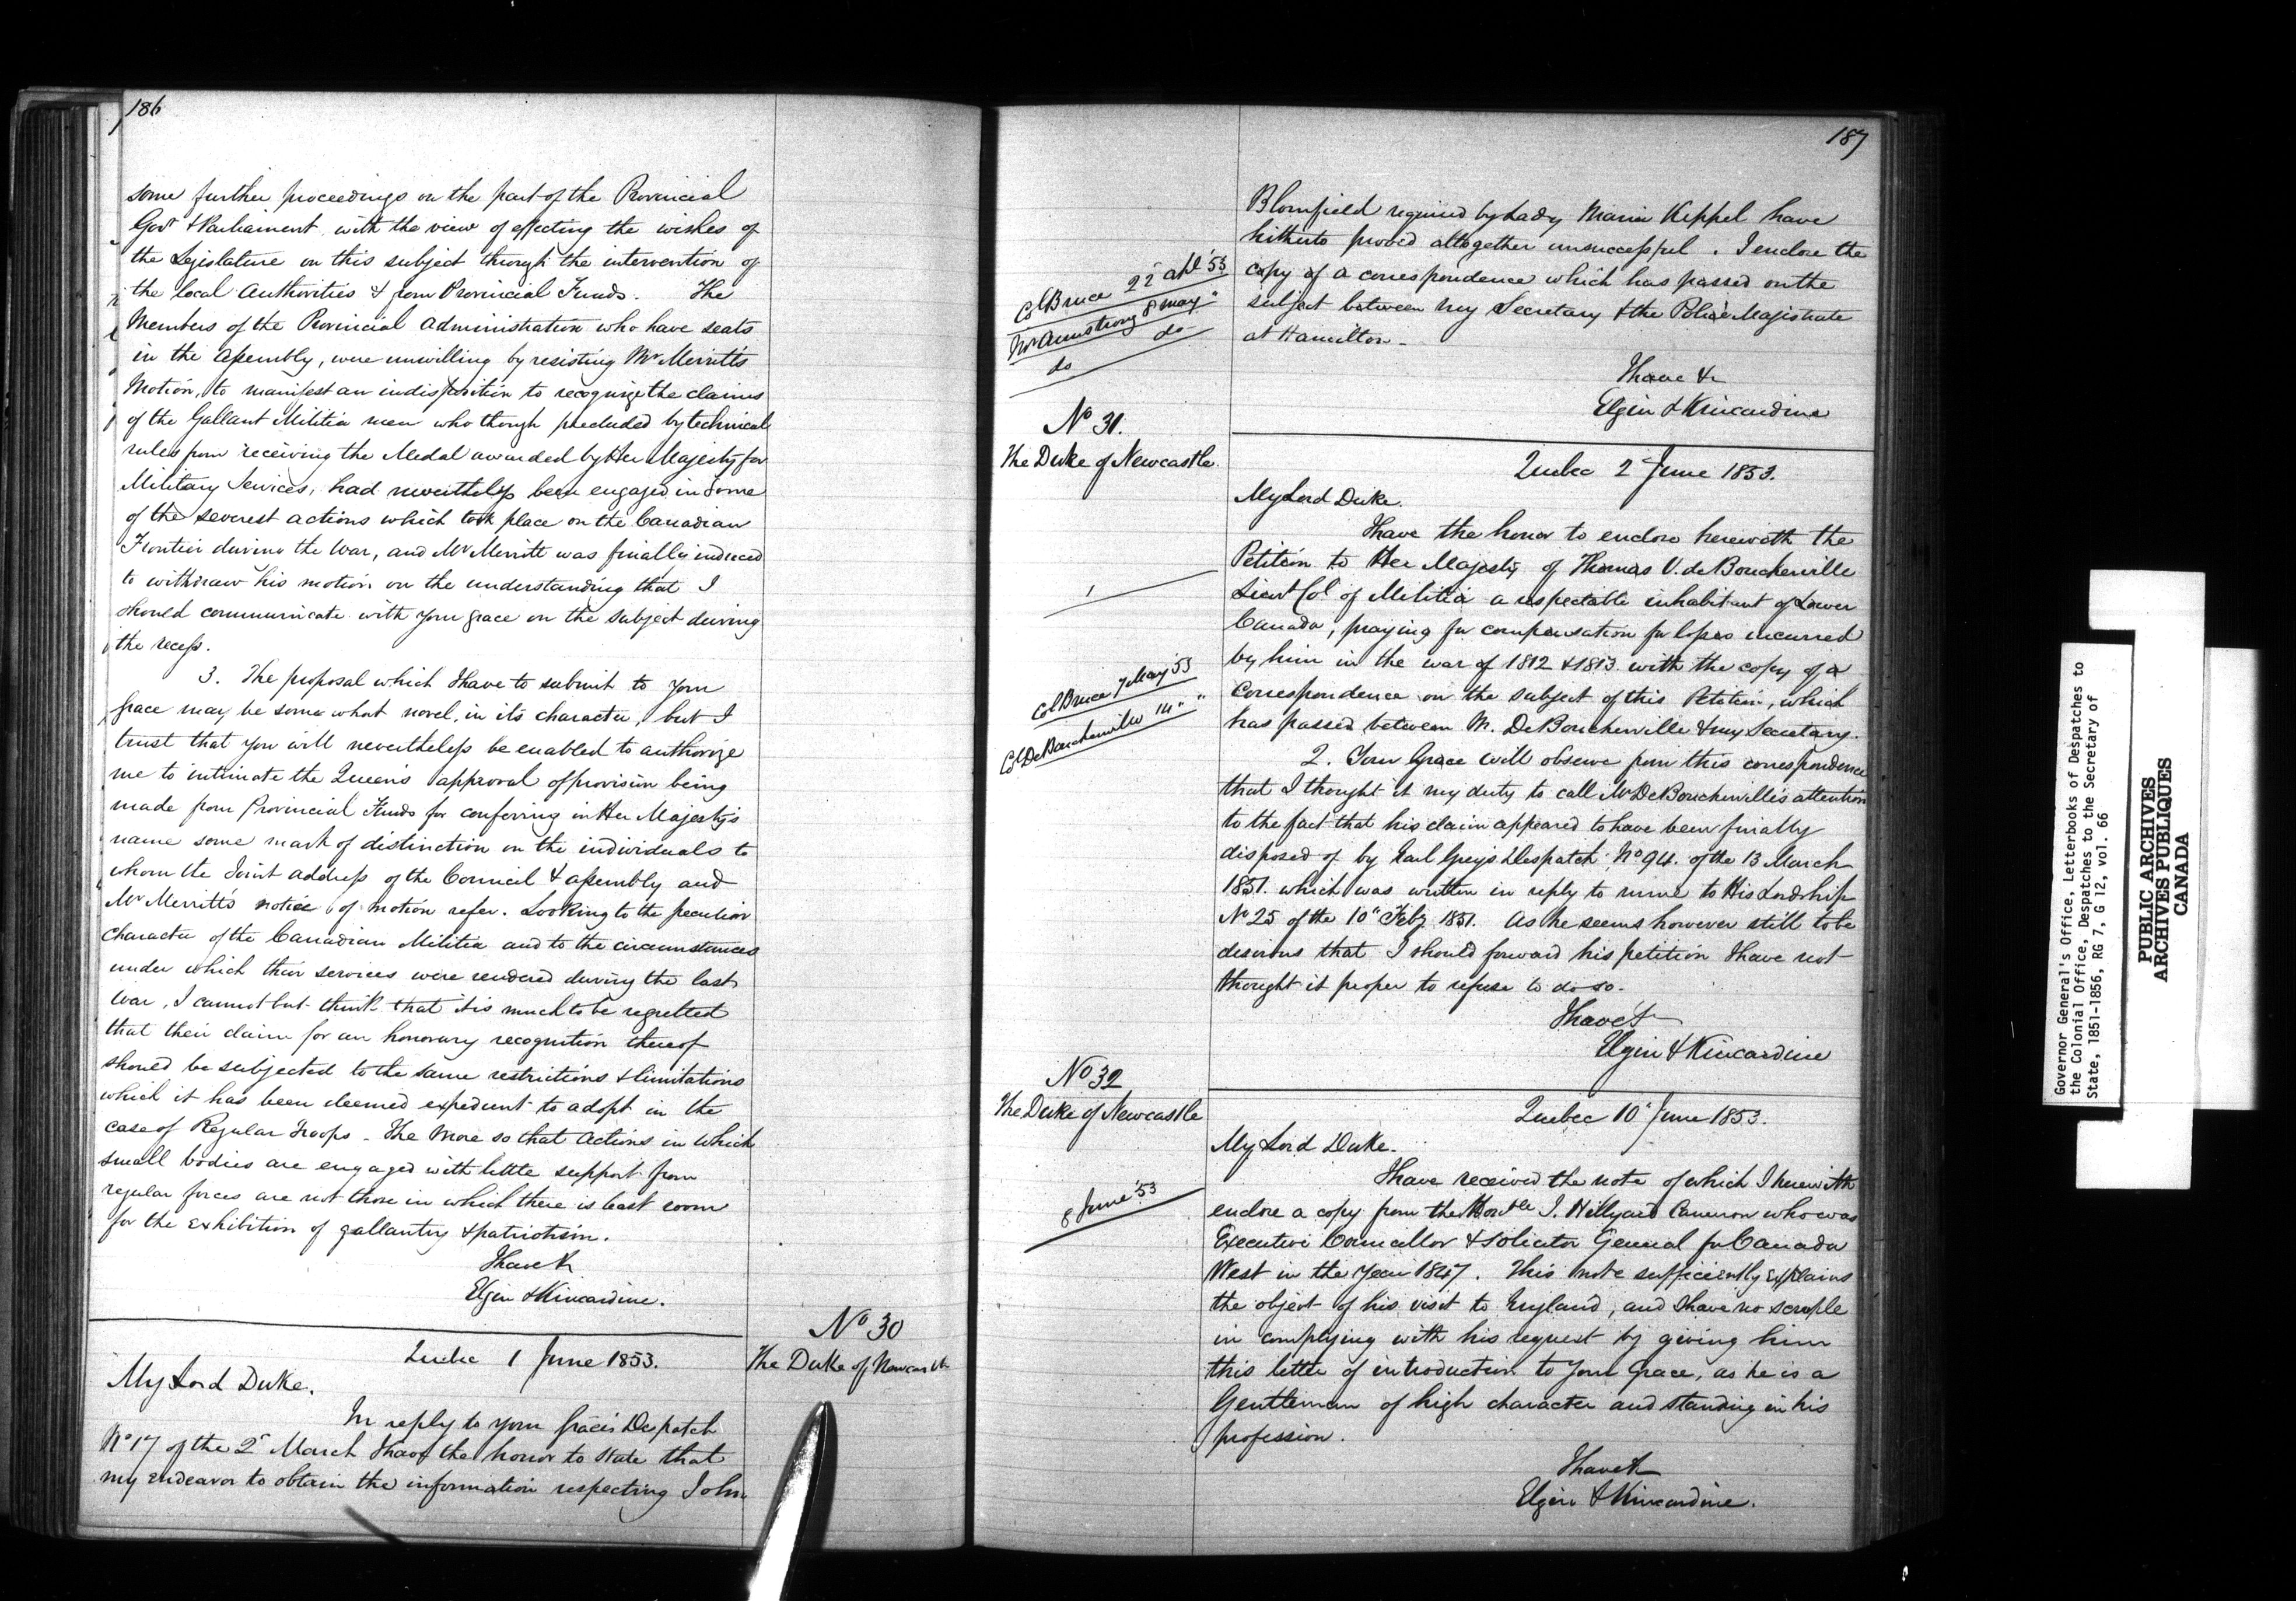 186
some further proceedings on the part of the Provincial
Govt & Parliament, with the view of effecting the wishes of
the Legislature on this subject through the intervention of
the local Authorities & from Provincial Funds. The
Members of the Provincial Administration who have seats
in the Assembly, were unwilling by resisting Mr Merritt's
Motion, to manifest an indisposition to recognize the claims
of the Gallant Militia men who though precluded by technical
rules from receiving the Medal awarded by Her Majesty for
Military Services, had nevertheless been engaged in some
of the severest actions which took place on the Canadian
Frontier during the War, and Mr Merritt was finally induced
to withdraw his motion on the understanding that I
should communicate with your Grace on the subject during
the recess.
3. The proposal which I have to submit to Your
Grace may be some what novel, in its character, but I
trust that you will nevertheless be enabled to authorize
me to intimate the Queen's approval of provision being
made from Provincial Funds for conferring in Her Majesty's
name some mark of distinction on the individuals to
whom the Joint Address of the Council & Assembly and
Mr Merritt's notice of motion refer. Looking to the peculiar
character of the Canadian Militia and to the circumstances
under which their services were rendered during the last
War, I cannot but think that it is much to be regretted
that their claim for an honorary recognition thereof
should be subjected to the same restrictions & limitations
which it has been deemed expedient to adopt in the
case of Regular Troops - The more so that Actions in which
small bodies are engaged with little support from
regular forces are not those in which there is least room
for the exhibition of gallantry & patriotism.
I have &
Elgin & Kincardine.
No 30
The Duke of Newcastle
Quebec 1 June 1853.
My Lord Duke.
In reply to your Grace's Despatch
No 17 of the 2d March I have the honor to state that
my endeavor to obtain the information respecting John
187
Blomfield required by Lady Maria Keppel have
hitherto proved altogether unsuccessful. I enclose the
copy of a correspondence which has passed on the
subject between my Secretary & the Police Magistrate
at Hamilton -
Col Bruce 22 apl 53
Mr Armstrong 8 may "
do do
I have &
Elgin & Kincardine
No 31.
The Duke of Newcastle.
Quebec 2d June 1853.
My Lord Duke.
I have the honor to enclose herewith the
Petition to Her Majesty of Thomas V. de Boucherville
Lieut Col of Militia a respectable inhabitant of Lower
Canada, praying for compensation for losses incurred
by him in the war of 1812 & 1813. with the copy of a
correspondence on the subject of this Petition, which
has passed between M. De Boucherville & my Secretary.
1
Col Bruce 7 May 53
Col De Boucherville 14 "
2. Your Grace will observe from this correspondence
that I thought it my duty to call Mr De Boucherville's attention
to the fact that his claim appeared to have been finally
disposed of by Earl Grey's Despatch, No 94. of the 13 March
1851. which was written in reply to mine to His Lordship
No 25 of the 10th Feby 1851. As he seems however still to be
desirous that I should forward his petition I have not
thought it proper to refuse to do so.
I have &
Elgin & Kincardine
No 32
The Duke of Newcastle
Quebec 10th June 1853.
My Lord Duke.
I have received the note of which I herewith
enclose a copy from the Honble J. Hillyard Cameron who was
Executive Councillor & Solicitor General for Canada
West in the Year 1847. This note sufficiently explains
the object of his visit to England, and I have no scruple
in complying with his request by giving him
this letter of introduction to Your Grace, as he is a
Gentleman of high character and standing in his
profession.
8 June 53
I have &
Elgin & Kincardine.
Governor General's Office, Letterbooks of Despatches to
the Colonial Office, Despatches to the Secretary of
State, 1851-1856, RG 7, G 12, vol. 66
PUBLIC ARCHIVES
ARCHIVES PUBLIQUES
CANADA